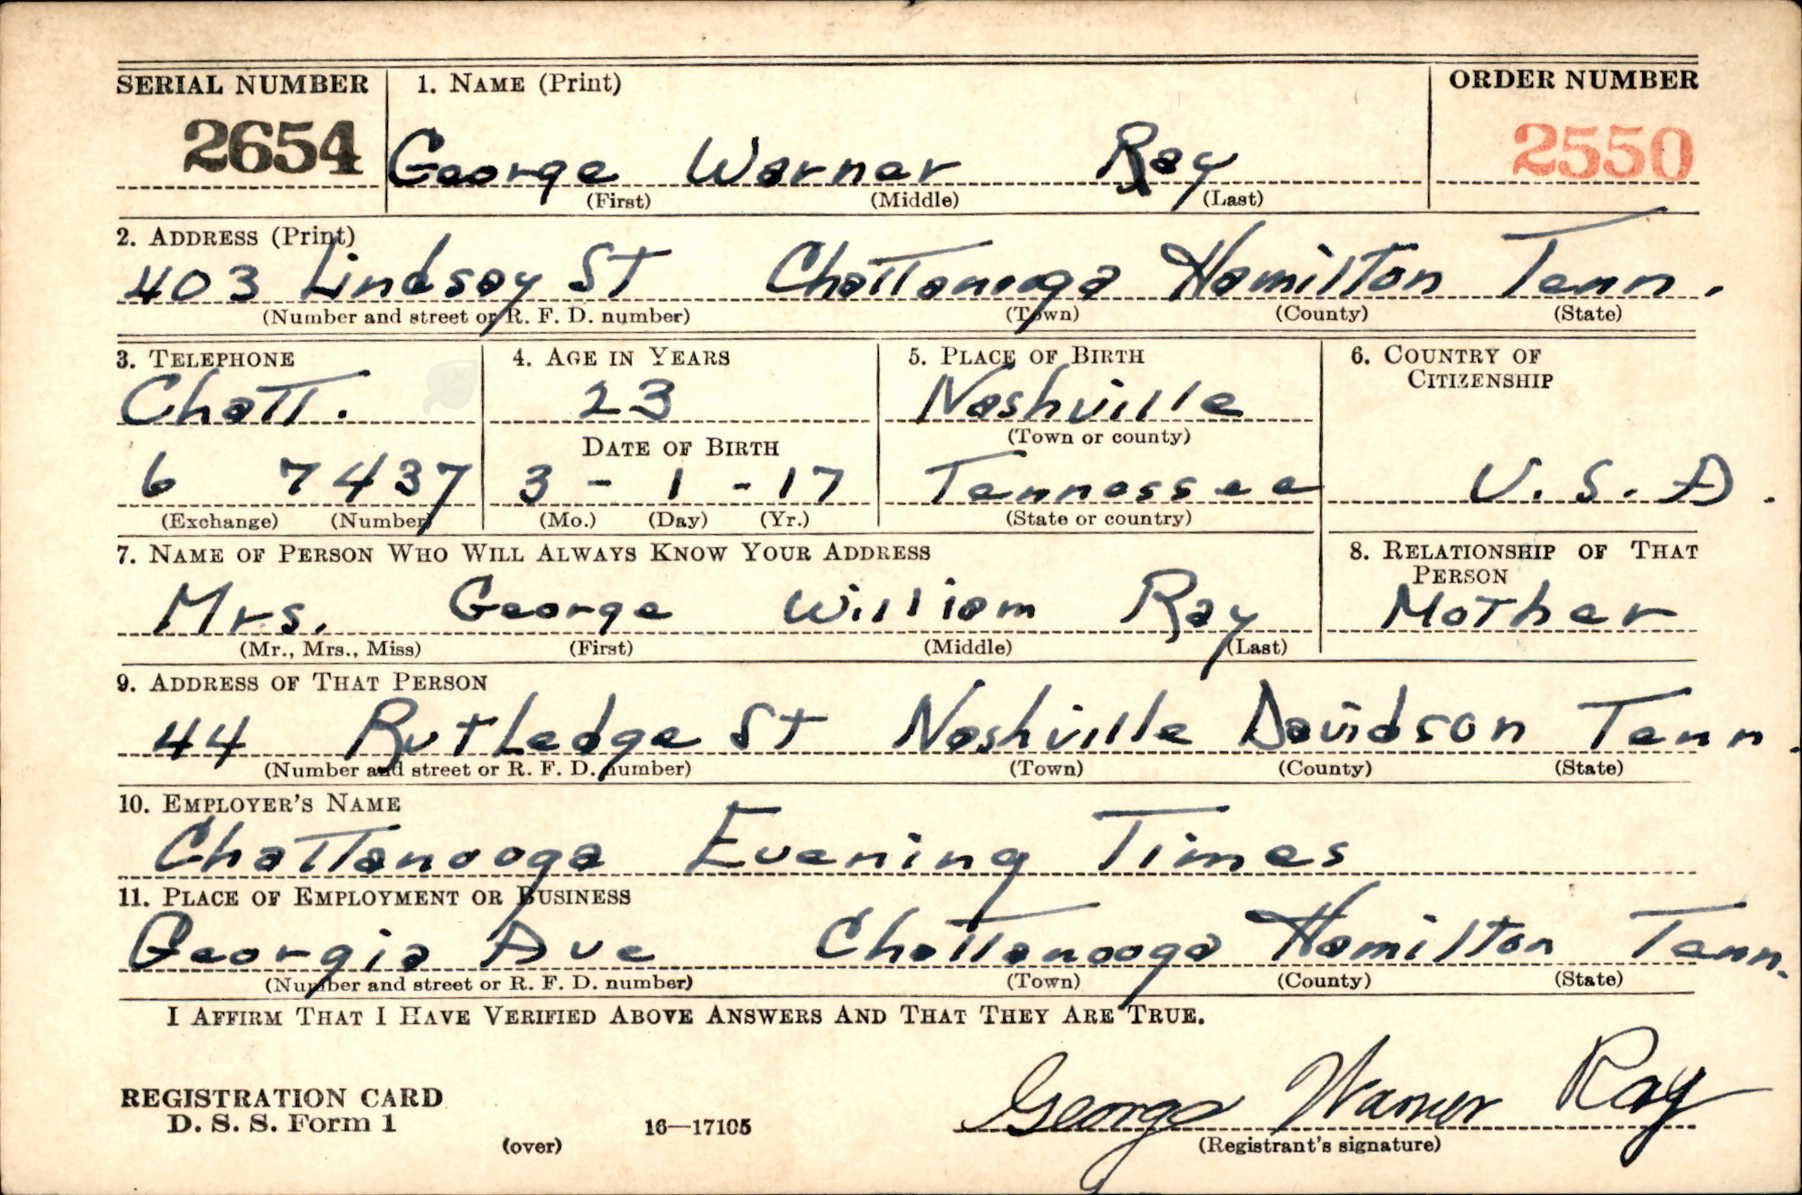 SERIAL NUMBER 1. NAME (Print) ORDER NUMBER
2654 George Warner Ray 2550
(First) (Middle) (Last)
2. ADDRESS (Print)
403 Lindsay St Chattanooga Hamilton Tenn.
(Number and street or R. F. D. number) (Town) (County) (State)
3. TELEPHONE 4. AGE IN YEARS 5. PLACE OF BIRTH 6. COUNTRY OF
CITIZENSHIP
Chatt. 23 Nashville
DATE OF BIRTH (Town or county)
6 7437 3 - 1 - 17 Tennessee U. S. A.
(Exchange) (Number) (Mo.) (Day) (Yr.) (State or country)
7. NAME OF PERSON WHO WILL ALWAYS KNOW YOUR ADDRESS 8. RELATIONSHIP OF THAT
PERSON
Mrs. George William Ray Mother
(Mr., Mrs., Miss) (First) (Middle) (Last)
9. ADDRESS OF THAT PERSON
44 Rutledge St Nashville Davidson Tenn.
(Number and street or R. F. D. number) (Town) (County) (State)
10. EMPLOYER'S NAME
Chattanooga Evening Times
11. PLACE OF EMPLOYMENT OR BUSINESS
Georgia Ave Chattanooga Hamilton Tenn.
(Number and street or R. F. D. number) (Town) (County) (State)
I AFFIRM THAT I HAVE VERIFIED ABOVE ANSWERS AND THAT THEY ARE TRUE.
REGISTRATION CARD
D. S. S. Form 1 George Warner Ray
(over) 16—17105 (Registrant's signature)